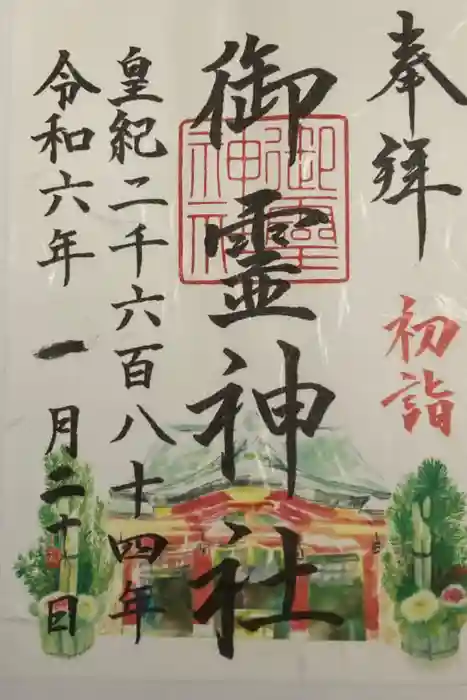 奉拝
初詣
御霊神社
御霊神社
皇紀二千六百八十四年
令和六年一月二十日